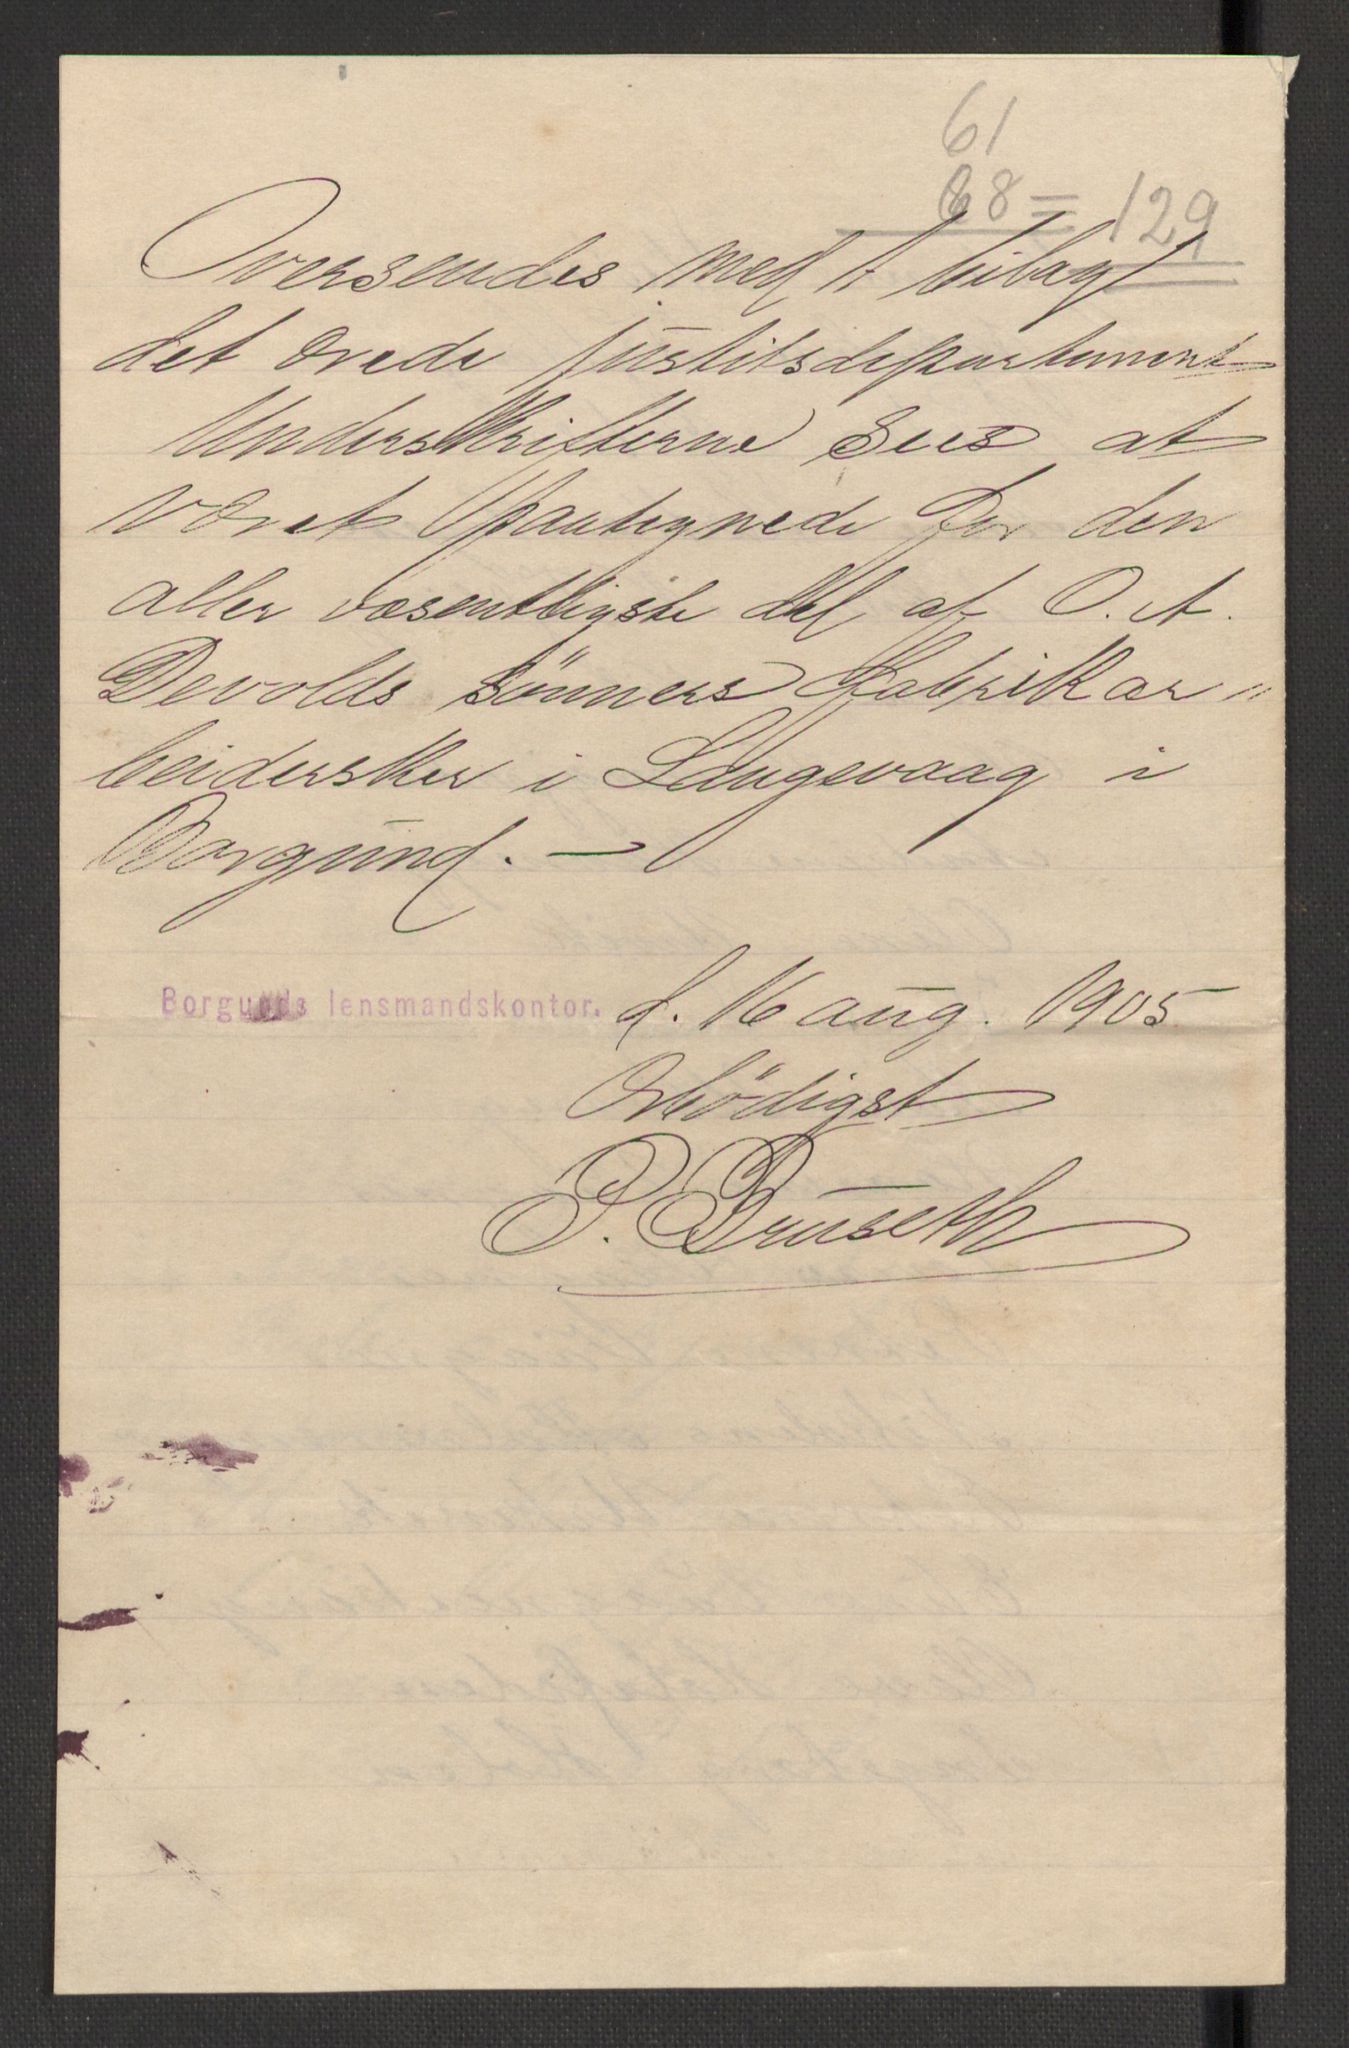 61
68 = 129
Oversendes med 1 bilag
det ærede Justitsdepartement
Underskrifterne sees at
været paategnede for den
aller væsentligste del af O. A.
Devolds sönners Fabrikar„
beidersker i Langevaag i
Borgund. —
Borgunds lensmandskontor. d. 16 aug. 1905
Ærbödigst
P. Bruseth